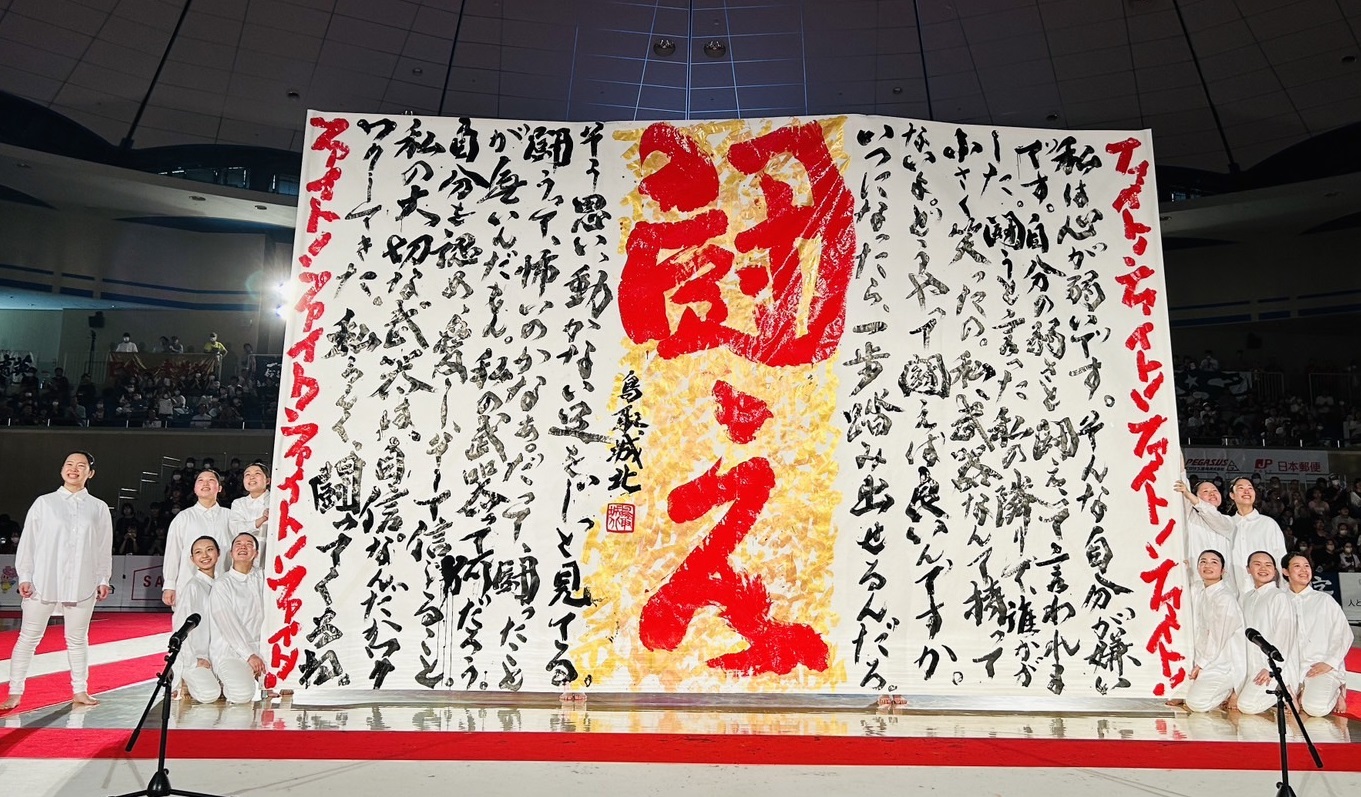 ファイト!ファイト!ファイト!ファイト!
私は心が弱いです。そんな自分が嫌い
です。自分の弱さと闘えって言われま
した。闘うと言った私の隣りで、誰かが
小さく笑ったの。私、武器なんて持って
ないよ。どうやって闘えば良いんですか。
いつになったら、一歩踏み出せるんだろ
闘え
鳥取城北
そう思い動かない足をじっと見てる
闘うって、怖いのかなぁ。だって、闘ったこと
が無いんだもん。私の武器って何だろう。
自分を認め、愛し、そして信じること
私の大切な武器は、自信。なんだかワク
ワクしてきた。私らしく、闘ってくるね。
ファイト!ファイト!ファイト!ファイト!
PEGASUS
JP 日本郵便